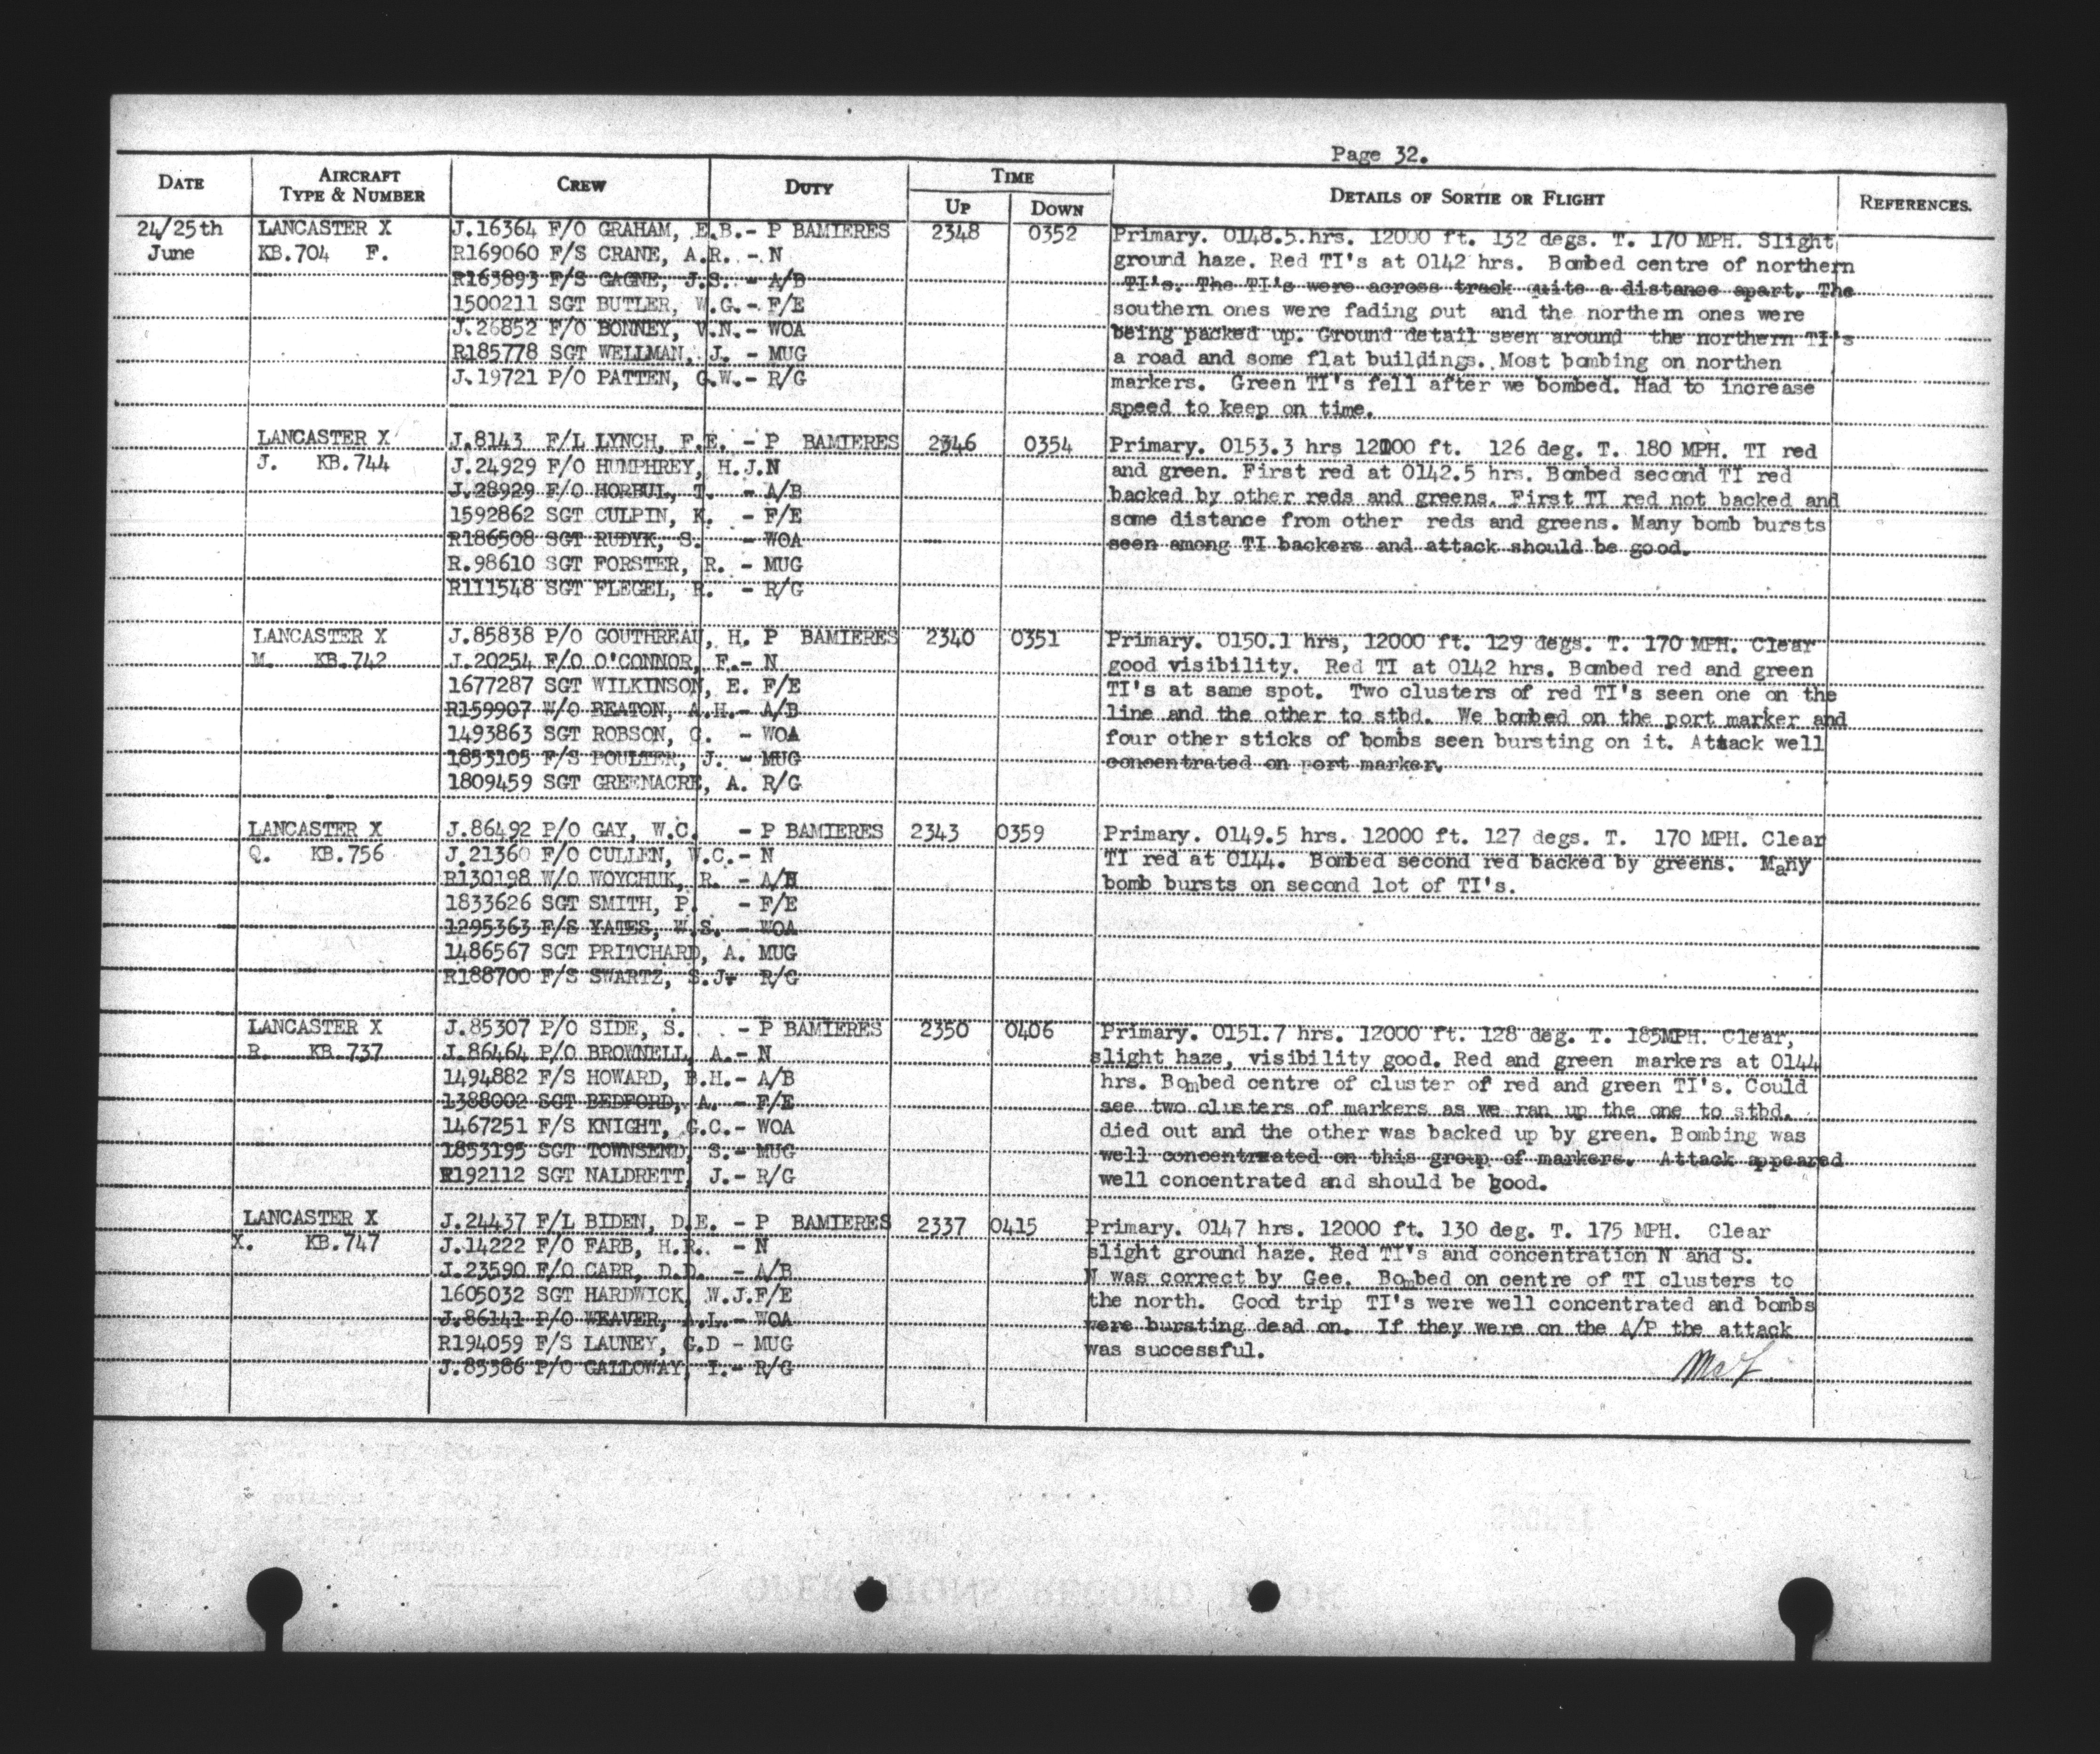 Page 32.
DATE AIRCRAFT TYPE & NUMBER CREW DUTY TIME UP DOWN DETAILS OF SORTIE OR FLIGHT REFERENCES.
24/25th LANCASTER X J.16364 F/O GRAHAM, E.B.- P BAMIERES 2348 0352 Primary. 0148.5.hrs. 12000 ft. 132 degs. T. 170 MPH. Slight
June KB.704 F. R169060 F/S CRANE, A.R. - N ground haze. Red TI's at 0142 hrs. Bombed centre of northern
R163893 F/S GAGNE, J.S. - A/B TI's. The TI's were across track quite a distance apart. The
1500211 SGT BUTLER, W.G.- F/E southern ones were fading out and the northern ones were
J.26852 F/O BONNEY, V.N.- WOA being packed up. Ground detail seen around the northern TI's
R185778 SGT WELLMAN, J. - MUG a road and some flat buildings. Most bombing on northen
J.19721 P/O PATTEN, G.W.- R/G markers. Green TI's fell after we bombed. Had to increase
speed to keep on time.
LANCASTER X J.8143 F/L LYNCH, F.E. - P BAMIERES 2346 0354 Primary. 0153.3 hrs 12000 ft. 126 deg. T. 180 MPH. TI red
J. KB.744 J.24929 F/O HUMPHREY, H.J.N and green. First red at 0142.5 hrs. Bombed second TI red
J.28929 F/O HORBUL, T. - A/B backed by other reds and greens. First TI red not backed and
1592862 SGT CULPIN, K. - F/E some distance from other reds and greens. Many bomb bursts
R186508 SGT RUDYK, S. - WOA seen among TI backers and attack should be good.
R.98610 SGT FORSTER, R. - MUG
R111548 SGT FLEGEL, R. - R/G
LANCASTER X J.85838 P/O GOUTHREAU, H. P BAMIERES 2340 0351 Primary. 0150.1 hrs, 12000 ft. 129 degs. T. 170 MPH. Clear
M. KB.742 J.20254 F/O O'CONNOR, F.- N good visibility. Red TI at 0142 hrs. Bombed red and green
1677287 SGT WILKINSON, E. F/E TI's at same spot. Two clusters of red TI's seen one on the
R159907 W/O BEATON, A.H.- A/B line and the other to stbd. We bombed on the port marker and
1493863 SGT ROBSON, G. - WOA four other sticks of bombs seen bursting on it. Attack well
1853105 F/S POULTER, J. - MUG concentrated on port marker.
1809459 SGT GREENACRE, A. R/G
LANCASTER X J.86492 P/O GAY, W.C. - P BAMIERES 2343 0359 Primary. 0149.5 hrs. 12000 ft. 127 degs. T. 170 MPH. Clear
Q. KB.756 J.21360 F/O CULLEN, W.C.- N TI red at 0144. Bombed second red backed by greens. Many
R130198 W/O WOYCHUK, R. - A/B bomb bursts on second lot of TI's.
1833626 SGT SMITH, P. - F/E
1295363 F/S YATES, W.S. - WOA
1486567 SGT PRITCHARD, A. MUG
R188700 F/S SWARTZ, S.J. R/G
LANCASTER X J.85307 P/O SIDE, S. - P BAMIERES 2350 0406 Primary. 0151.7 hrs. 12000 ft. 128 deg. T. 185MPH. Clear,
R. KB 737 J.86464 P/O BROWNELL, A.- N slight haze, visibility good. Red and green markers at 0144
1494882 F/S HOWARD, B.H.- A/B hrs. Bombed centre of cluster of red and green TI's. Could
1388002 SGT BEDFORD, A. - F/E see two clusters of markers as we ran up the one to stbd.
1467251 F/S KNIGHT, G.C.- WOA died out and the other was backed up by green. Bombing was
1853195 SGT TOWNSEND, S.- MUG well concentrated on this group of markers. Attack appeared
R192112 SGT NALDRETT, J.- R/G well concentrated and should be good.
LANCASTER X J.24437 F/L BIDEN, D.E. - P BAMIERES 2337 0415 Primary. 0147 hrs. 12000 ft. 130 deg. T. 175 MPH. Clear
X. KB.747 J.14222 F/O FARB, H.R. - N slight ground haze. Red TI's and concentration N and S.
J.23590 F/O CARR, D.D. - A/B N was correct by Gee. Bombed on centre of TI clusters to
1605032 SGT HARDWICK, W.J.F/E the north. Good trip TI's were well concentrated and bombs
J.86141 P/O WEAVER, A.L.- WOA were bursting dead on. If they were on the A/P the attack
R194059 F/S LAUNEY, G.D - MUG was successful.
J.85386 P/O GALLOWAY, I.- R/G